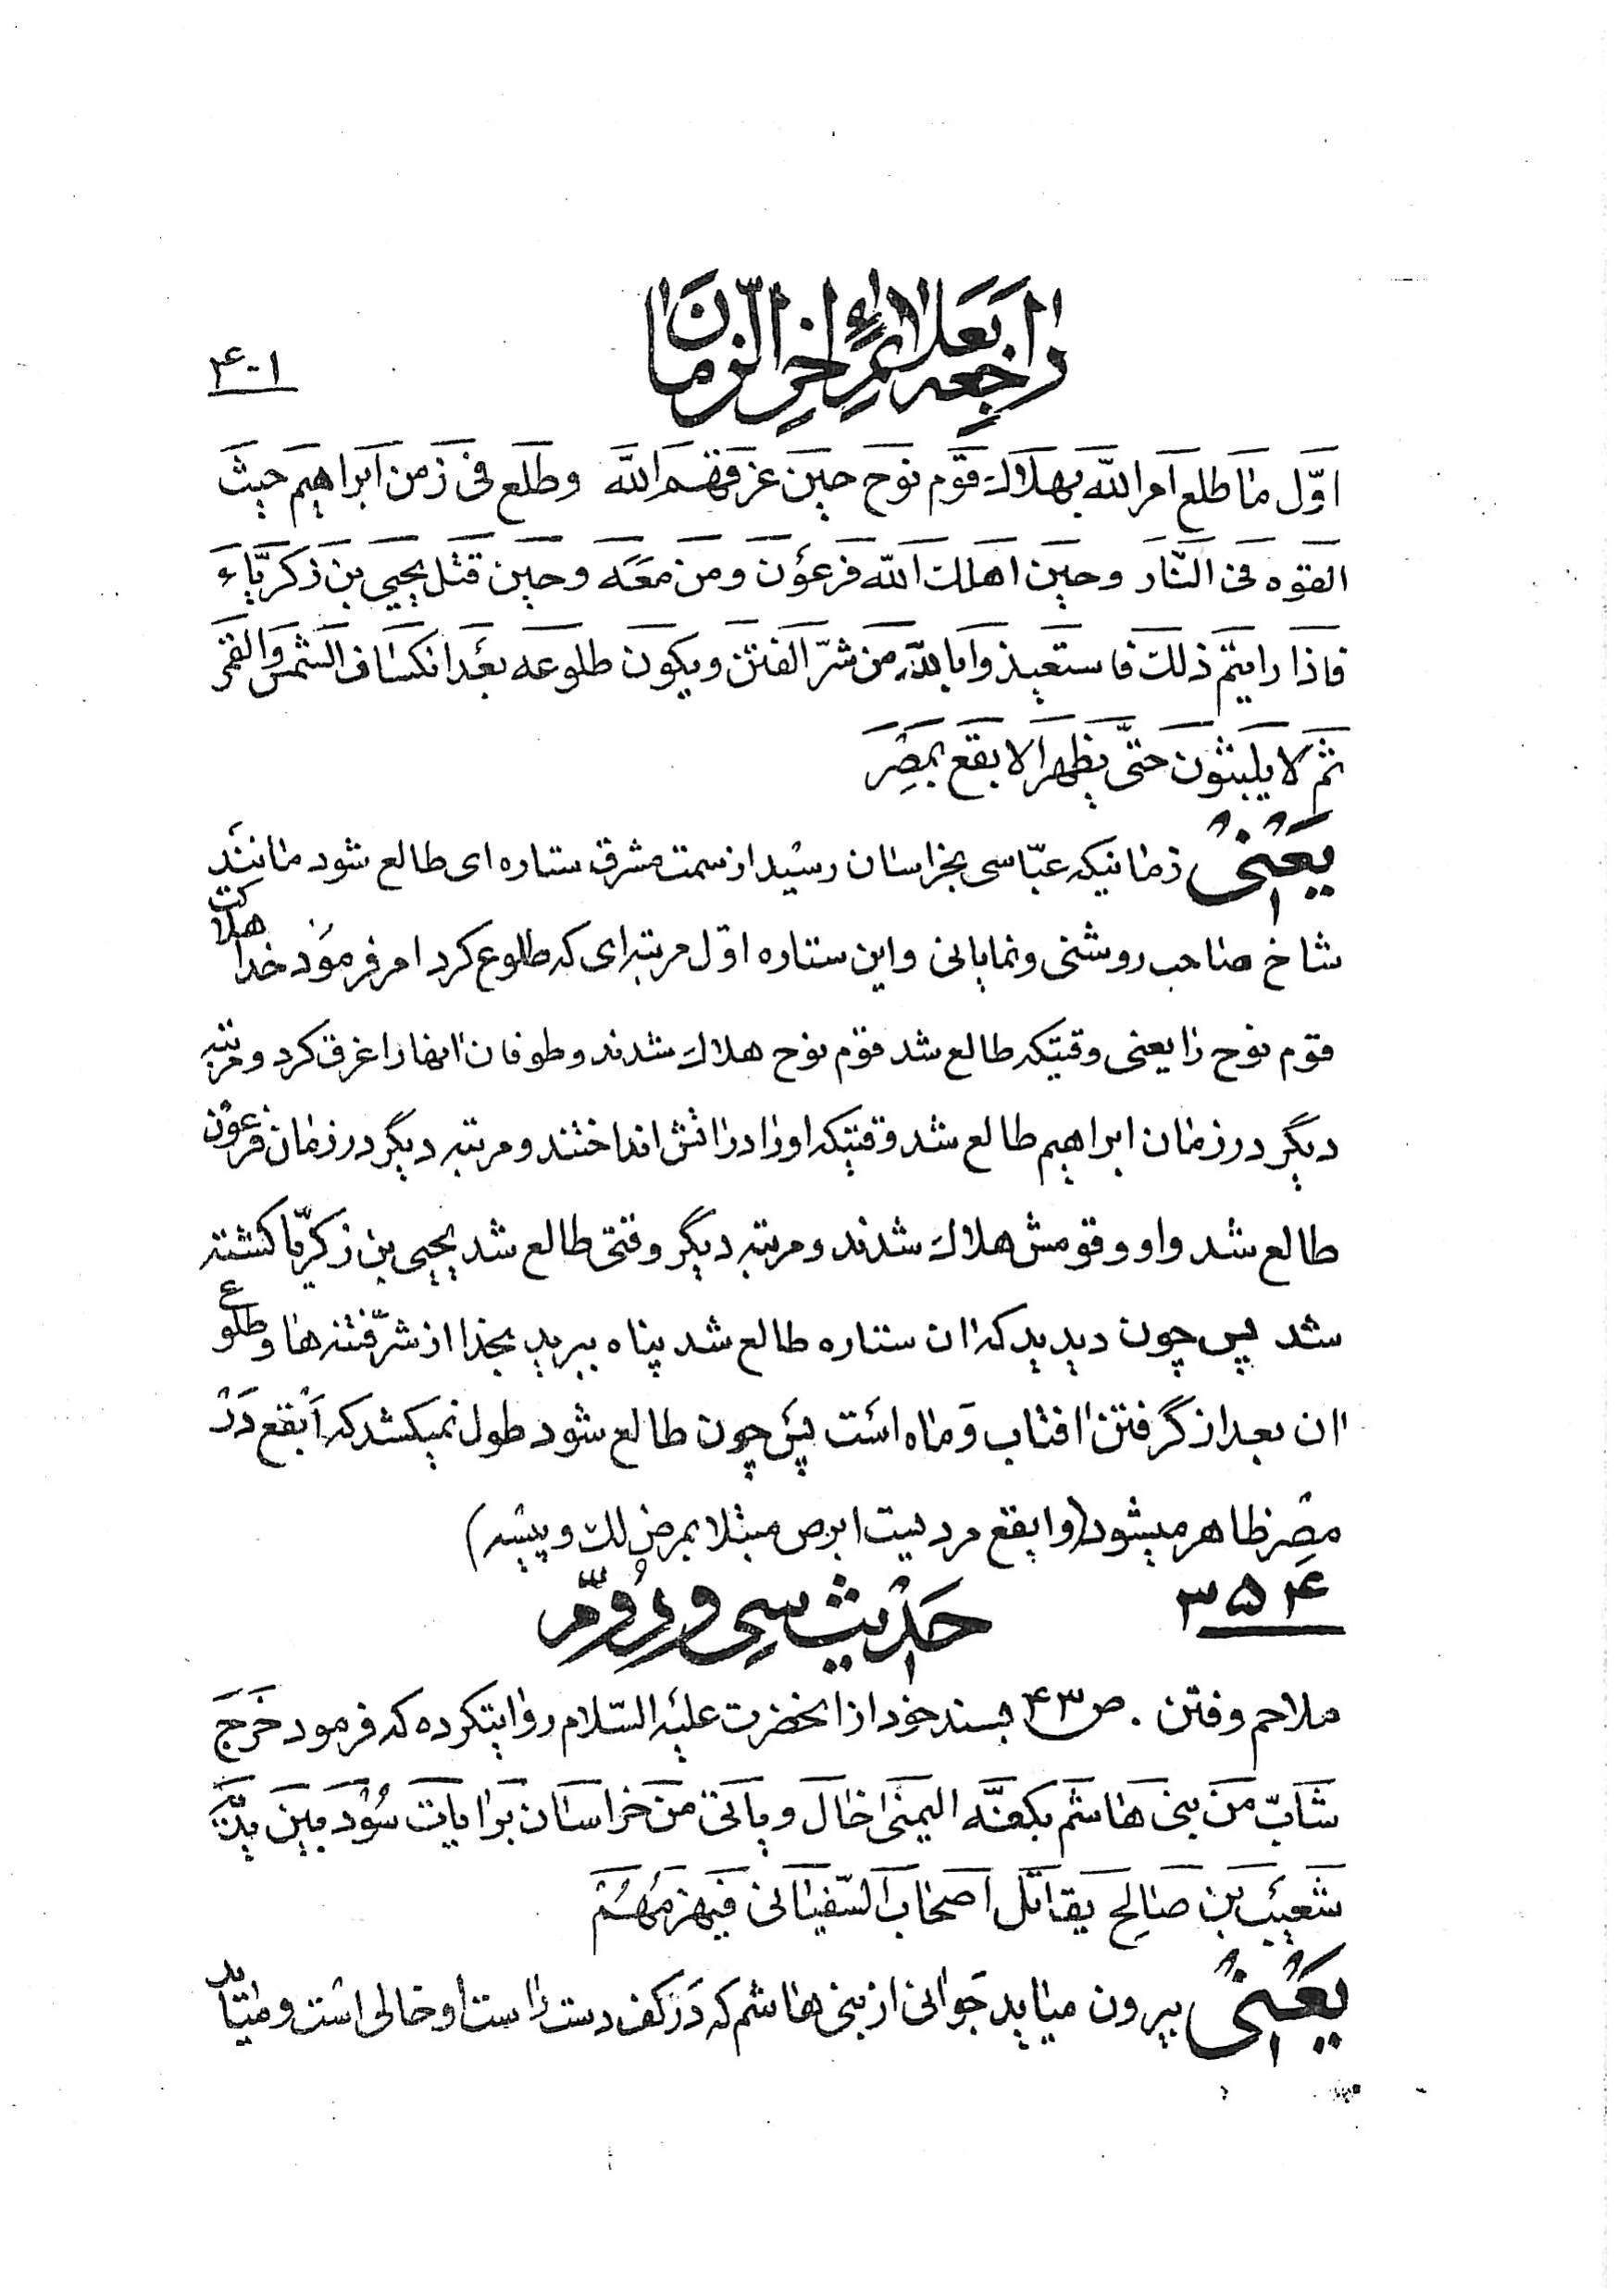 راجعه بعلائم اخر الزمان
۴۰۱
اوّل ماطلع امر اللّه بهلاك قوم نوح حین غرقهم اللّه وطلع فی زمن ابراهیم حیث
القوه فی النّار وحین اهلك اللّه فرعون ومن معه وحین قتل یحیی بن زکریّاء
فاذا رایتم ذلك فاستعیذوا باللّه من شرّ الفتن ویکون طلوعه بعد انکساف الشمس والقمر
ثم لا یلبثون حتّی یظهر الابقع بمصر
یعنی زمانیکه عبّاسی بخراسان رسید از سمت مشرق ستاره ای طالع شود مانند
شاخ صاحب روشنی ونمایانی واین ستاره اوّل مرتبه ای که طلوع کرد امر فرمود خدا هلاکت
قوم نوح را یعنی وقتیکه طالع شد قوم نوح هلاك شدند وطوفان انها را غرق کرد ومرتبه
دیگر در زمان ابراهیم طالع شد وقتیکه او را در اتش انداختند ومرتبه دیگر در زمان فرعون
طالع شد واو وقومش هلاك شدند ومرتبه دیگر وقتی طالع شد یحیی بن زکریّا کشته
شد پس چون دیدید که ان ستاره طالع شد پناه ببرید بخدا از شرّ فتنه ها وطلوع
ان بعد از گرفتن افتاب وماه است پس چون طالع شود طول نمیکشد که ابقع در
مصر ظاهر میشود (وابقع مردیست ابرص مبتلا بمرض لك وپیسه)
۳۵۴ حدیث سی ودوّم
ملاحم وفتن . ص۴۳ بسند خود از انحضرت علیه السّلام روایتکرده که فرمود خرج
شابّ من بنی هاشم بکفّه الیمنی خال ویاتی من خراسان برایات سود بین یدیه
شعیب بن صالح یقاتل اصحاب السّفیانی فیهزمهم
یعنی بیرون میاید جوانی از بنی هاشم که در کف دست راست او خالی است ومیاید